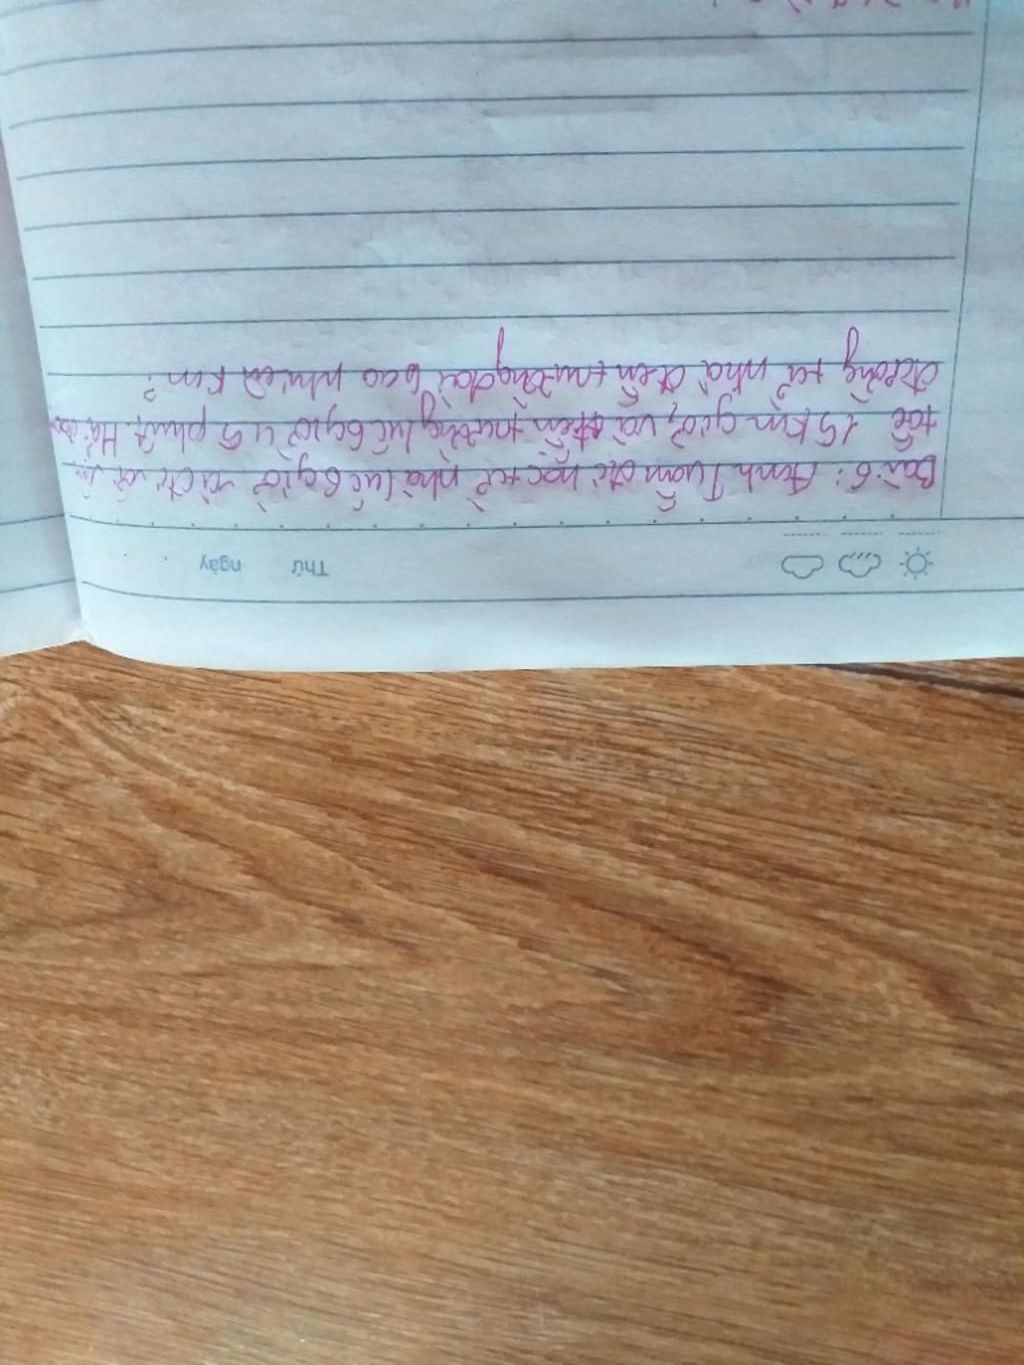 Thứ ngày
Bài 6: Anh Tuấn đi học từ nhà lúc 6 giờ và đi với vận
tốc 15 km giờ, và đến trường lúc 6 giờ 45 phút. Hỏi
đường từ nhà đến trường dài bao nhiêu km?